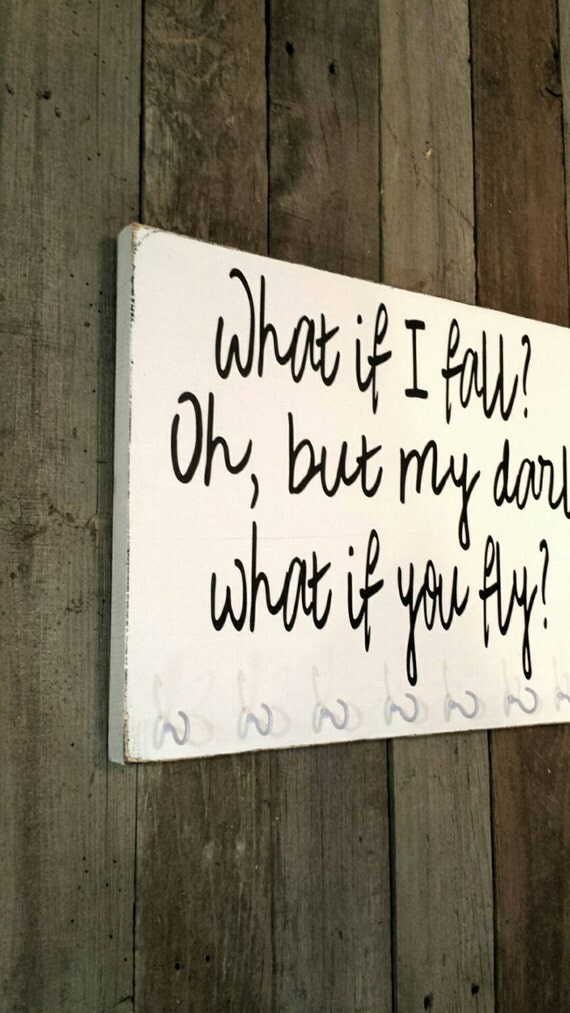 What if I fall?
Oh, but my darl
what if you fly?